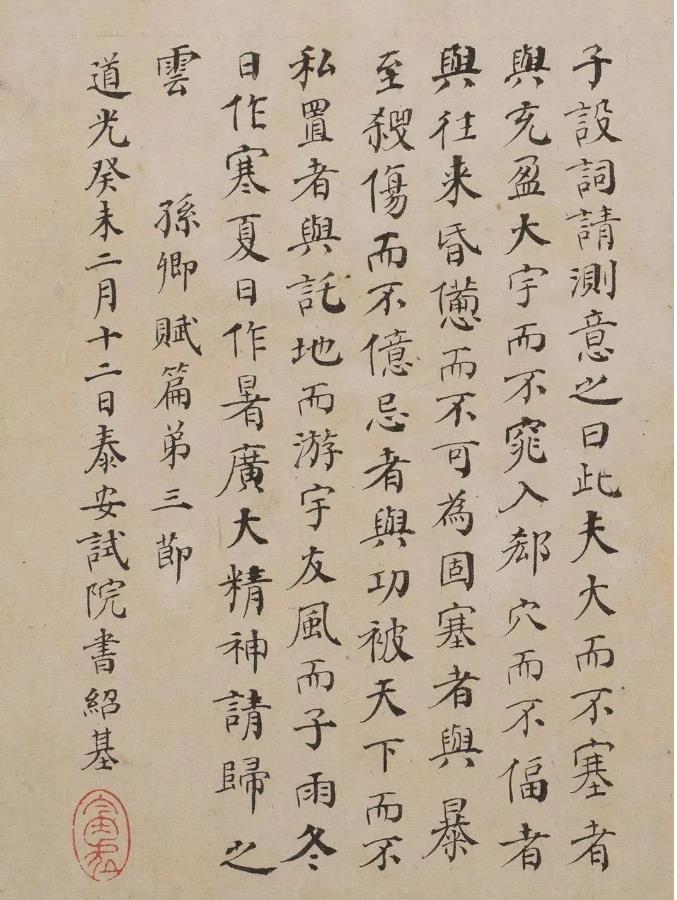 子設詞請測意之曰此夫大而不塞者
與充盈大宇而不窕入郄穴而不偪者
與往來昏憊而不可為固塞者與暴
至殺傷而不億忌者與功被天下而不
私置者與託地而游宇友風而子雨冬
日作寒夏日作暑廣大精神請歸之
雲 孫卿賦篇弟三節
道光癸未二月十二日泰安試院書紹基